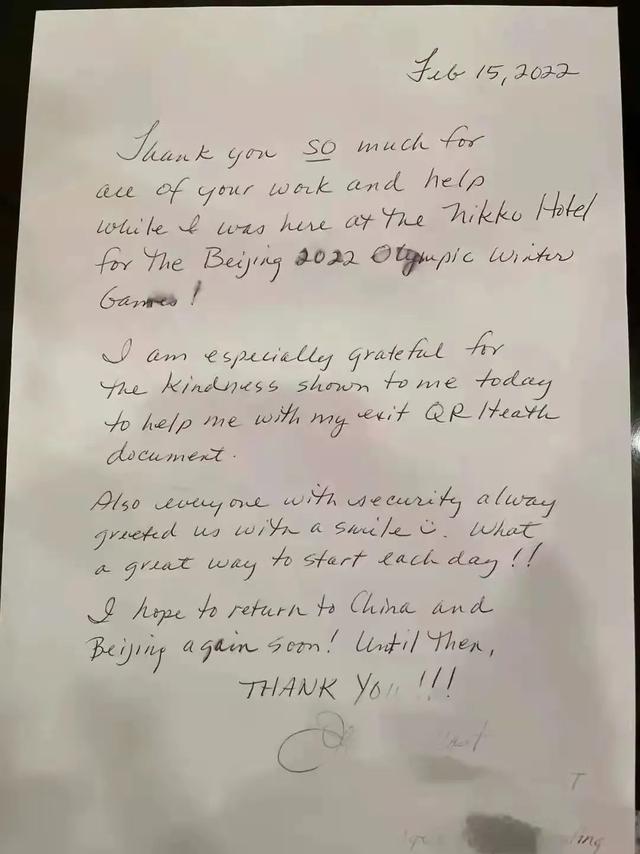 Feb 15, 2022
Thank you so much for
all of your work and help
while I was here at the Nikko Hotel
for the Beijing 2022 Olympic Winter
Games!
I am especially grateful for
the kindness shown to me today
to help me with my exit QR Heath
document.
Also everyone with security alway
greeted us with a smile ☺. What
a great way to start each day!!
I hope to return to China and
Beijing again soon! Until then,
THANK YOU!!!